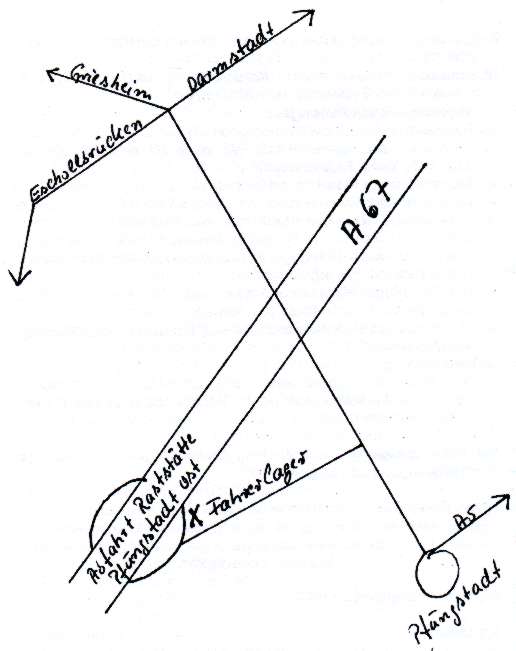 Griesheim
Darmstadt
Eschollbrücken
A 67
Abfahrt Raststätte
Pfüngstadt Ost
X Fahrerlager
A5
Pfüngstadt